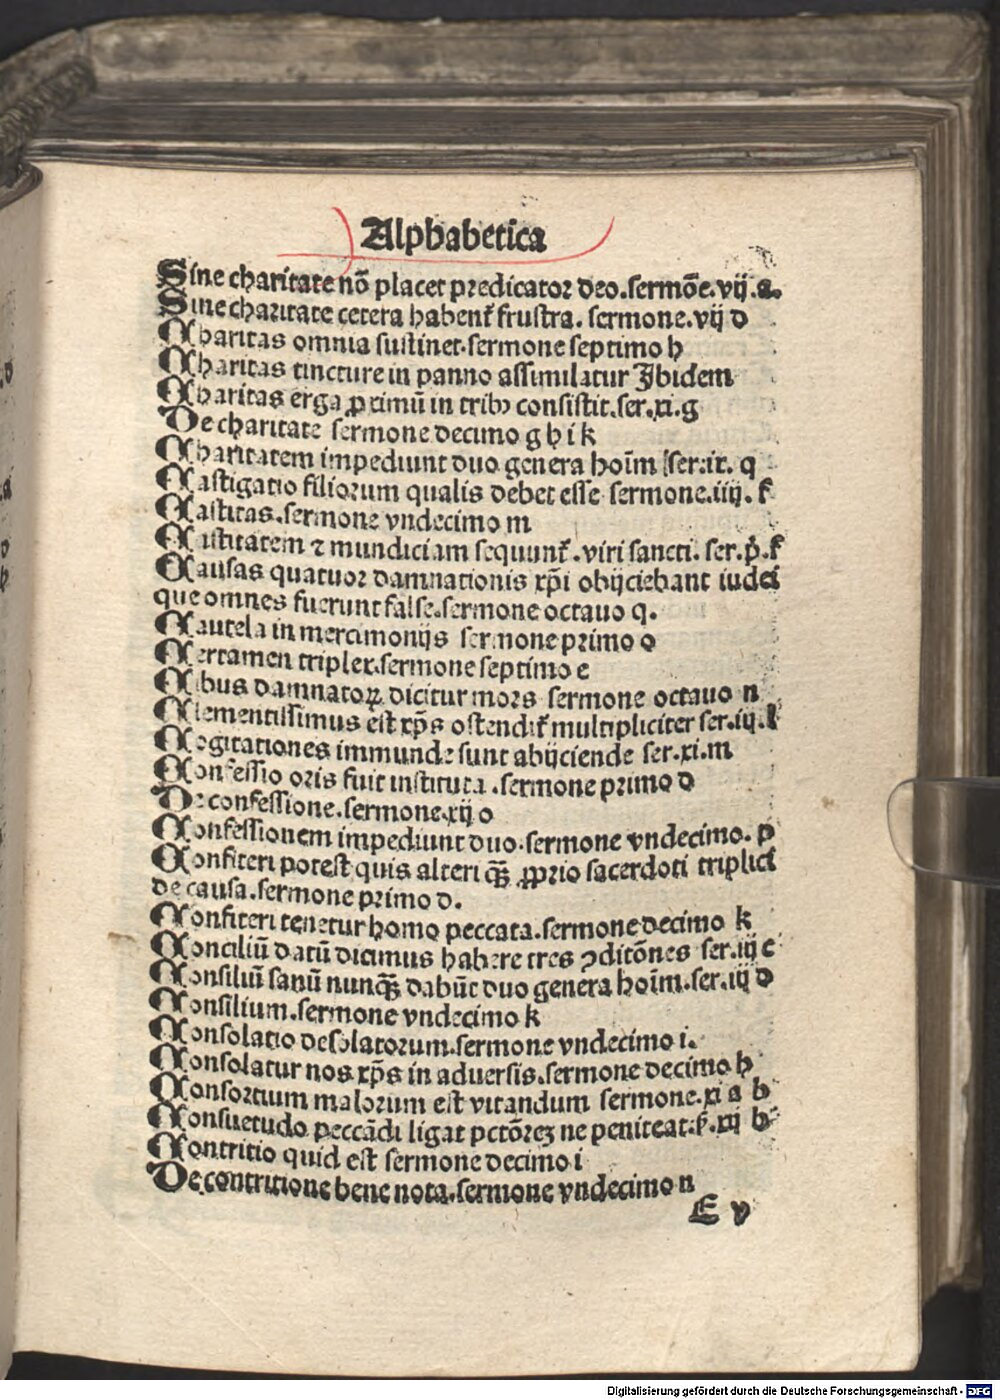 Alphabetica
Sine charitate nō placet predicator deo.sermōe.vij.a.
Sine charitate cetera habent᷑ frustra. sermone.vij d
Charitas omnia sustinet.sermone septimo h
Charitas tincture in panno assimilatur Ibidem
Charitas erga ꝓximū in tribꝰ consistit.ser.xi.g
De charitate sermone decimo g h i k
Charitatem impediunt duo genera hoīm ser.ix. q
Castigatio filiorum qualis debet esse sermone.iiij. f
Castitas.sermone vndecimo m
Castitatem ⁊ mundiciam sequunt᷑.viri sancti. ser.p̄.f
Causas quatuor damnationis xp̄i obijciebant iudei
que omnes fuerunt false.sermone octauo q.
Cautela in mercimonijs sermone primo o
Certamen triplex.sermone septimo e
Cibus damnatoꝝ dicitur mors sermone octauo n
Clementissimus est xp̄s ostendit᷑ multipliciter ser.iij.l
Cogitationes immunde sunt abijciende ser.xi.m
Confessio oris fuit instituta.sermone primo d
De confessione.sermone.xij o
Confessionem impediunt duo.sermone vndecimo. p
Confiteri potest quis alteri q̄ꝫ ꝓprio sacerdoti triplici
de causa.sermone primo d.
Confiteri tenetur homo peccata.sermone decimo k
Conciliū datū dicimus habere tres ꝯditōnes ser.iij c
Consiliū sanū nunq̄ꝫ dabūt duo genera hoīm.ser.iij d
Consilium.sermone vndecimo k
Consolatio desolatorum.sermone vndecimo i.
Consolatur nos xp̄s in aduersis.sermone decimo h
Consortium malorum est vitandum sermone.xi a b
Consuetudo peccādi ligat pctōreꝫ ne peniteat.ẜ.xij b
Contritio quid est sermone decimo i
De contritione bene nota.sermone vndecimo n
E v
Digitalisierung gefördert durch die Deutsche Forschungsgemeinschaft - DFG